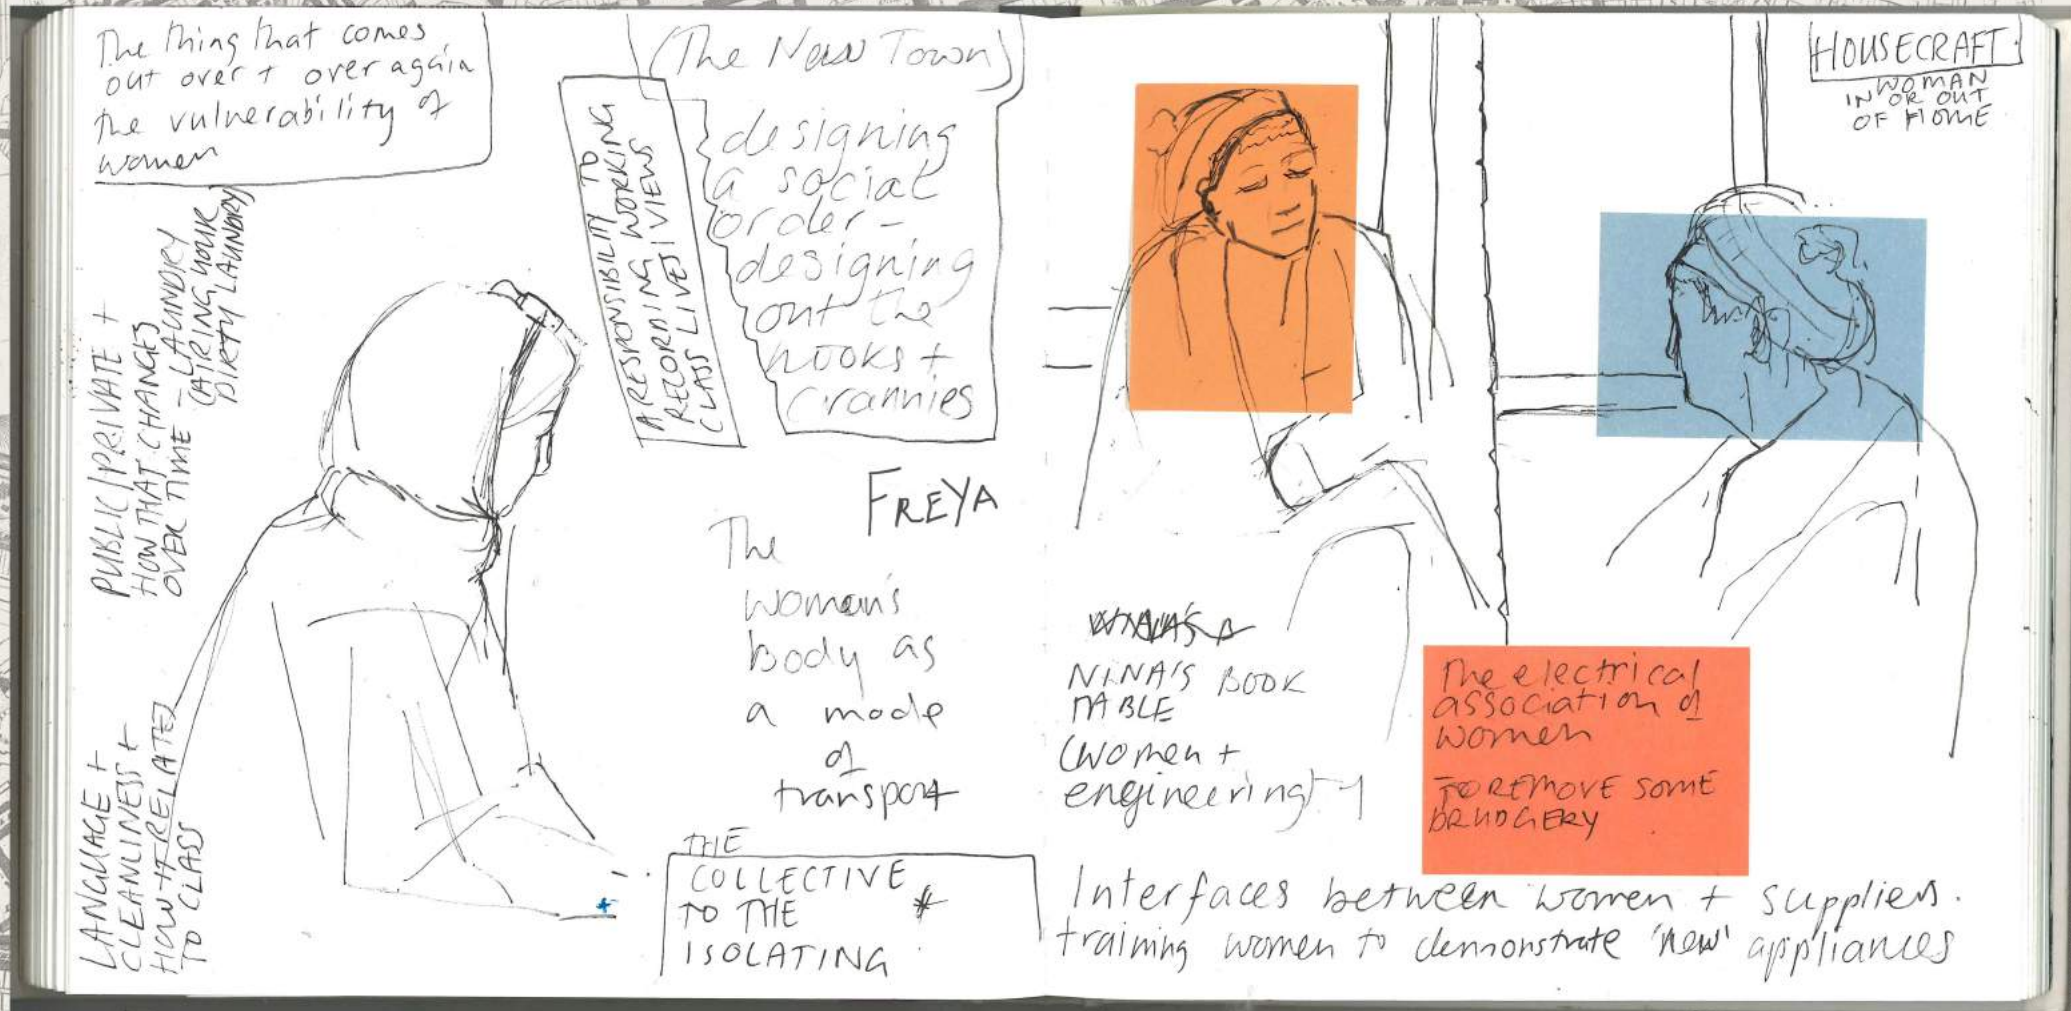 The thing that comes
out over + over again
the vulnerability of
women
PUBLIC/PRIVATE +
HOW THAT CHANGES
OVER TIME - LAUNDRY
(AIRING YOUR
DIRTY LAUNDRY)
LANGUAGE +
CLEANLINESS +
HOW IT RELATES
TO CLASS
A RESPONSIBILITY TO
RECORDING WORKING
CLASS LIVES/VIEWS
(The New Town)
designing
a social
order -
designing
out the
nooks +
crannies
FREYA
The
woman's
body as
a mode
of
transport
THE
COLLECTIVE
TO THE
ISOLATING
*
HOUSECRAFT
WOMAN
IN OR OUT
OF HOME
NINA'S BOOK
TABLE
(women +
engineering)
The electrical
association of
women
TO REMOVE SOME
DRUDGERY
Interfaces between women + suppliers.
training women to demonstrate 'new' appliances